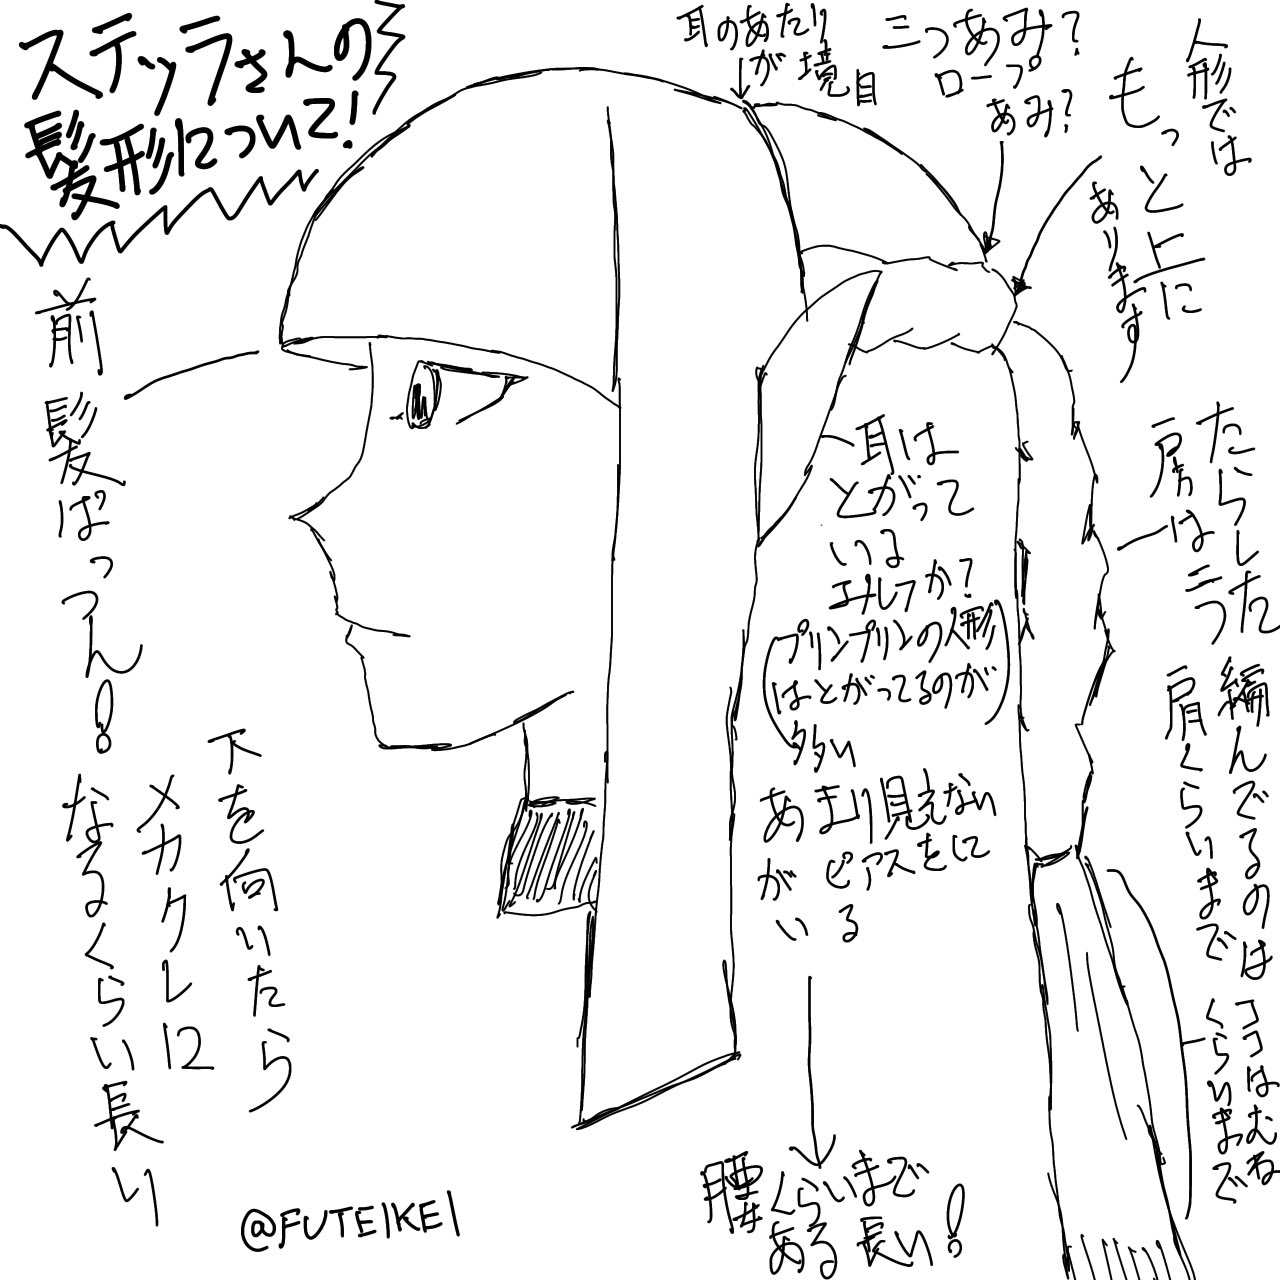 ステッラさんの
髪形について！
耳のあたり
が境目
三つあみ？
ロープ
あみ？
人形では
もっと上に
あります
前髪ぱっつん！
下を向いたら
メカクレに
なるくらい長い
耳は
とがって
いる
エルフか？
（プリンプリンの人形
はとがってるのが
多い）
あまり見えない
がピアスをして
いる
たらした
房は三つ
編んでるのは
肩くらいまで
ココはむね
くらいまで
腰くらいまで
ある長い！
@FUTEIKEI